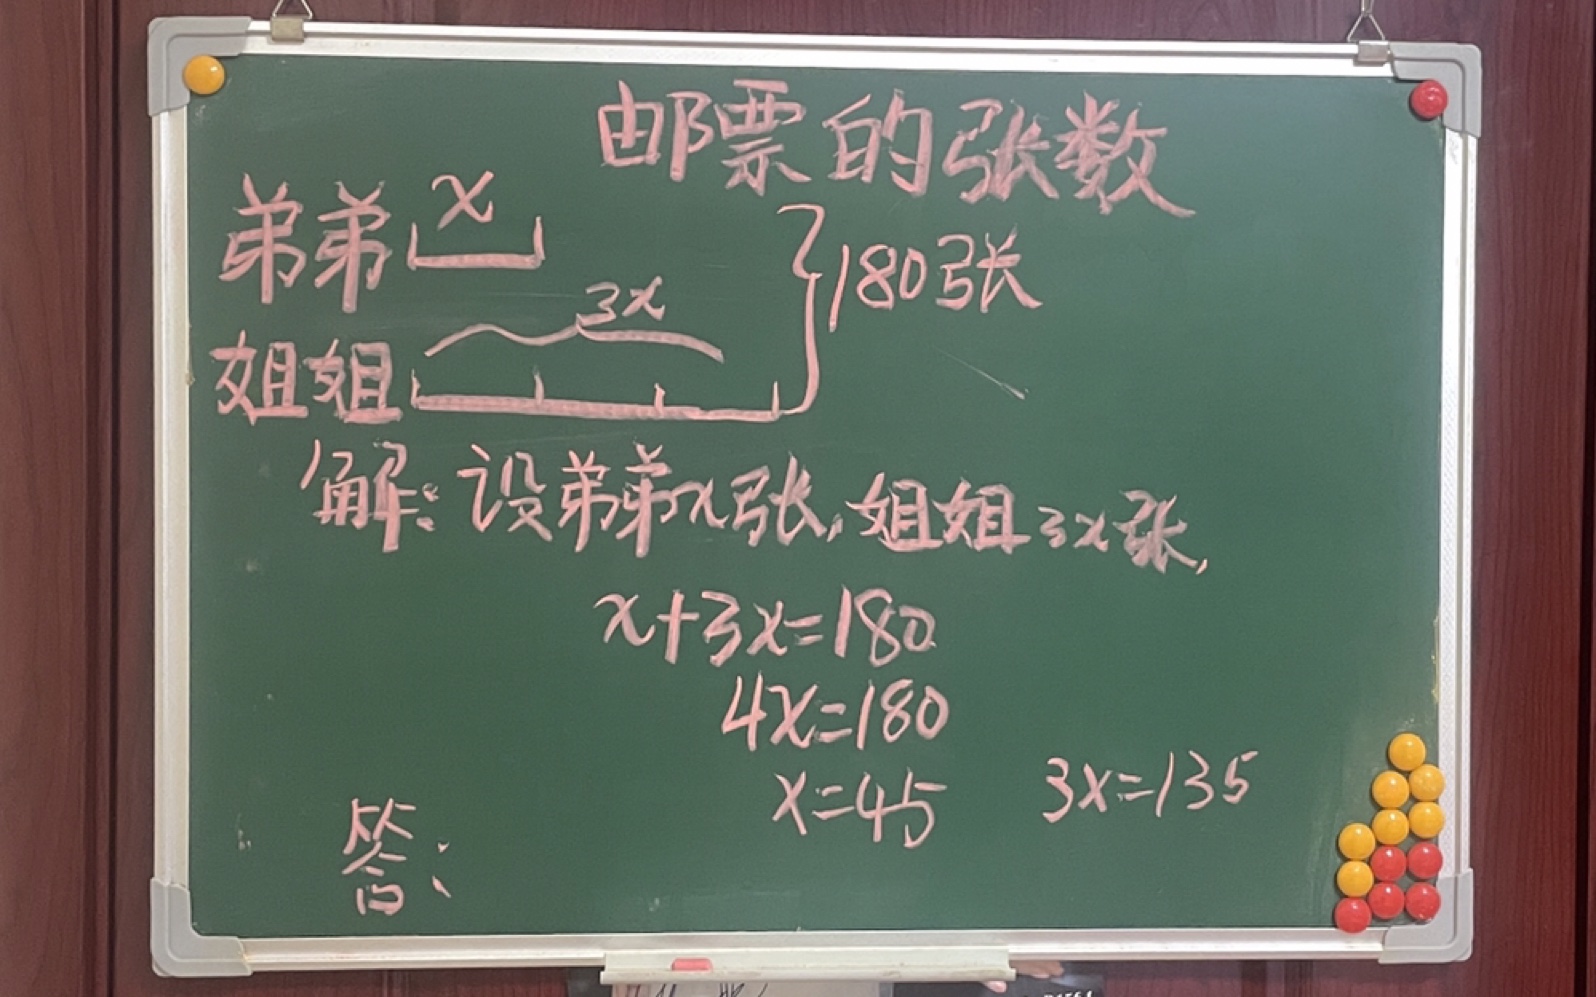 邮票的张数
弟弟 x
180张
3x
姐姐
解:设弟弟x张,姐姐3x张,
x+3x=180
4x=180
x=45 3x=135
答: